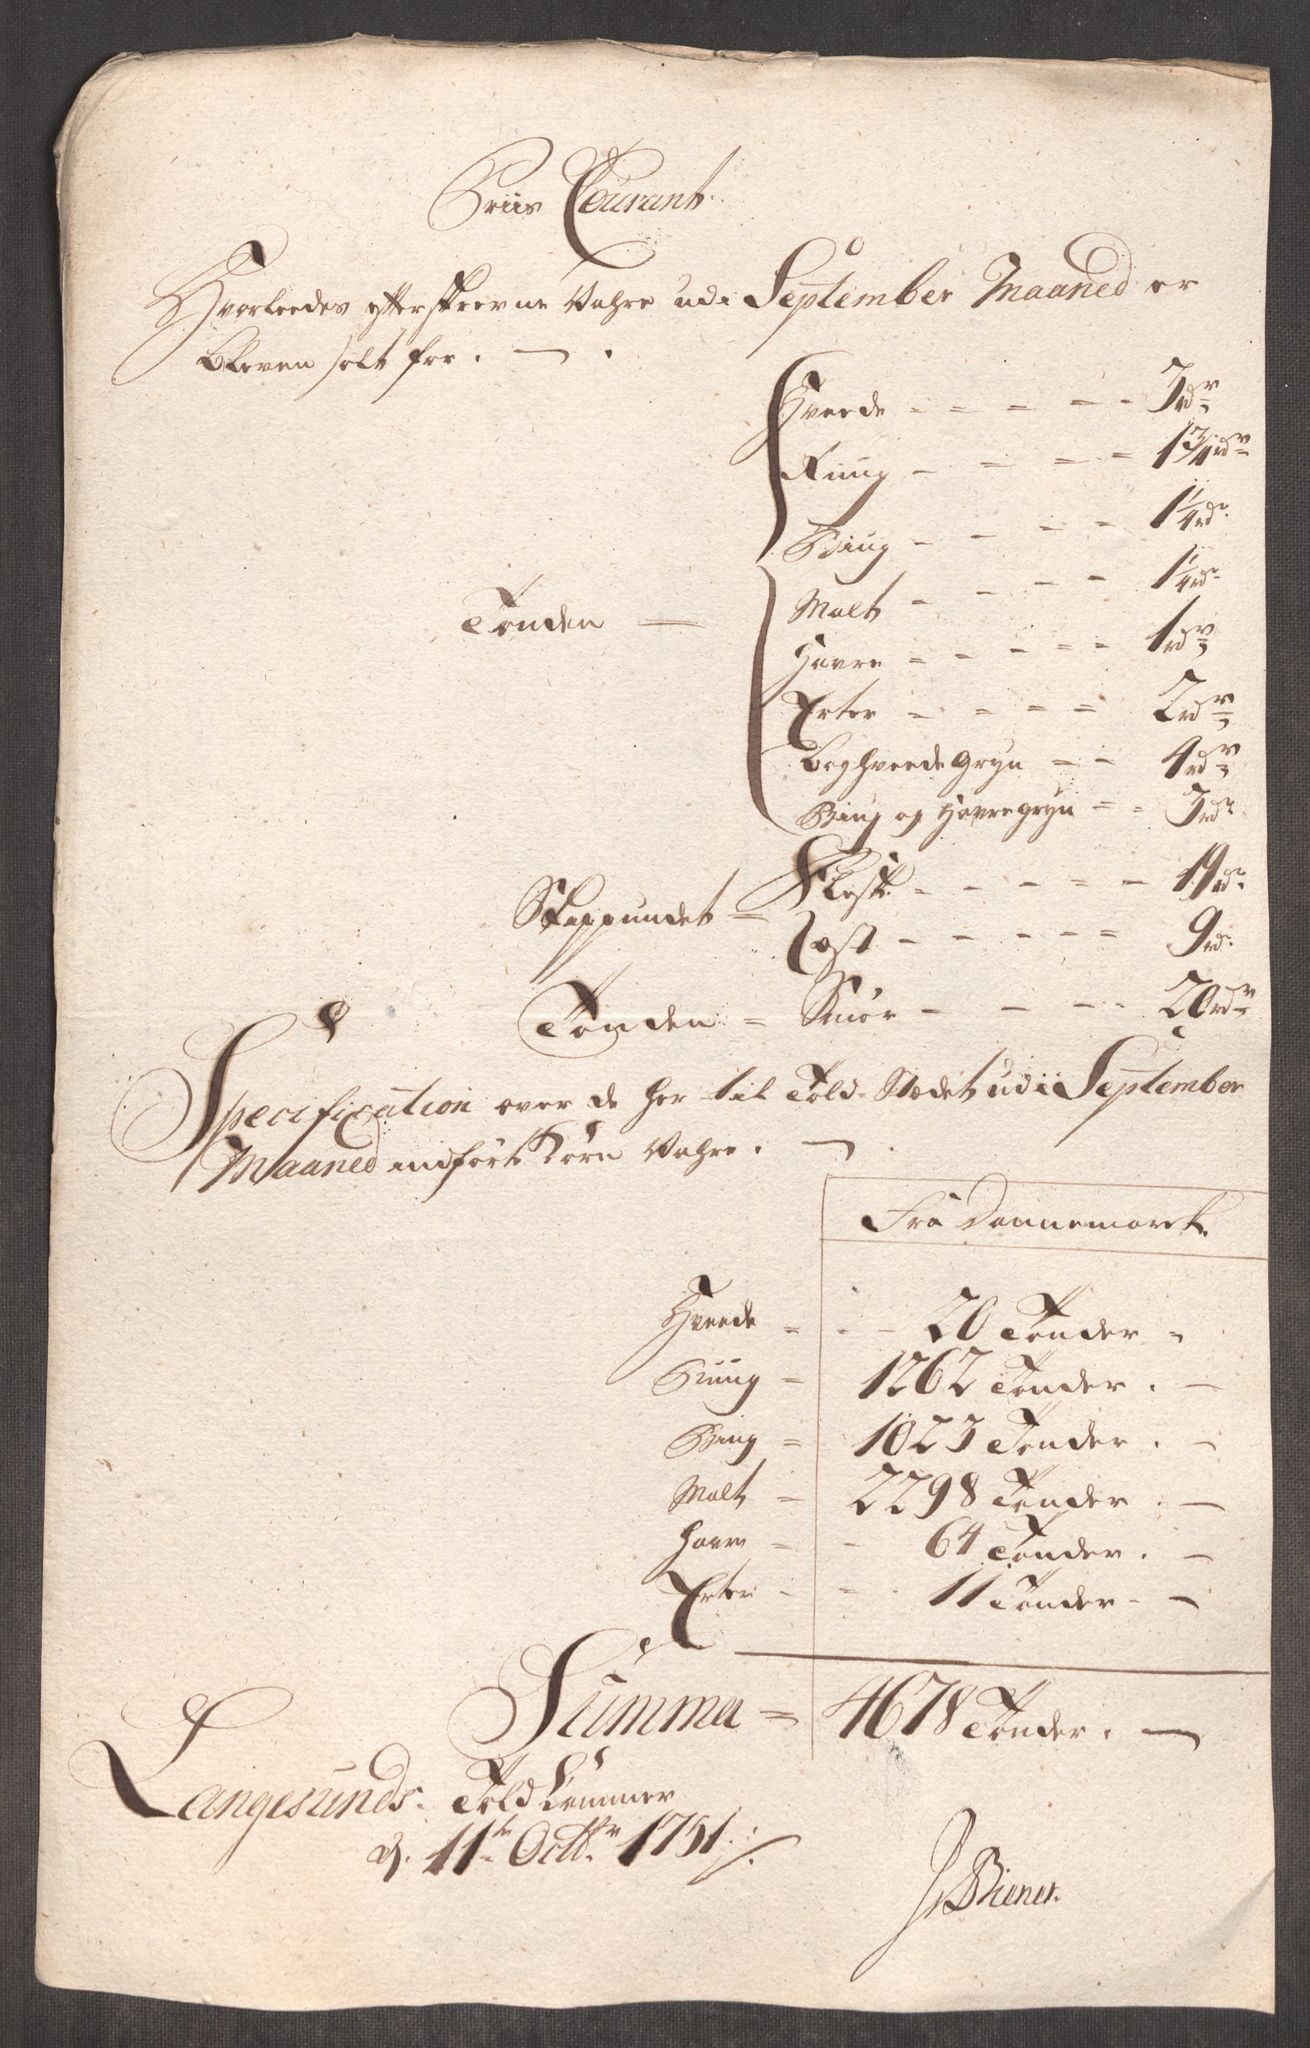 Priis Courant
Hvorleedes efterskrevne Vahre udi September Maaned er
bleven solt for.
Hveede - - - - - 3 rdr
Ruug - - - - 1 3/4 rdr
Biug - - - - 1 1/4 rdr
Tønden — Malt - - - - 1 1/4 rdr
Havre - - - - - 1 rdr
Erter - - - - - 2 rdr
Boghveede Gryn - - 4 rdr
Biug og Havregryn - - 3 rdr
Skippundet = Flesk - - - - - 19 rdr
Ost - - - - - 9 rdr
Tønden = Smør - - - - 20 rdr
Specification over de her til Told-Stædet udi September
Maaned indførte Korn Vahre.
Fra Dannemarck
Hveede - - - 20 Tønder
Ruug = 1262 Tønder. —
Biug = 1023 Tønder. —
Malt = 2298 Tønder. —
Havre - - 64 Tønder. —
Erter - - 11 Tønder. —
Summa = 4678 Tønder. —
Langesunds Told Kammer
d. 11te Octbr 1751.
Biener.